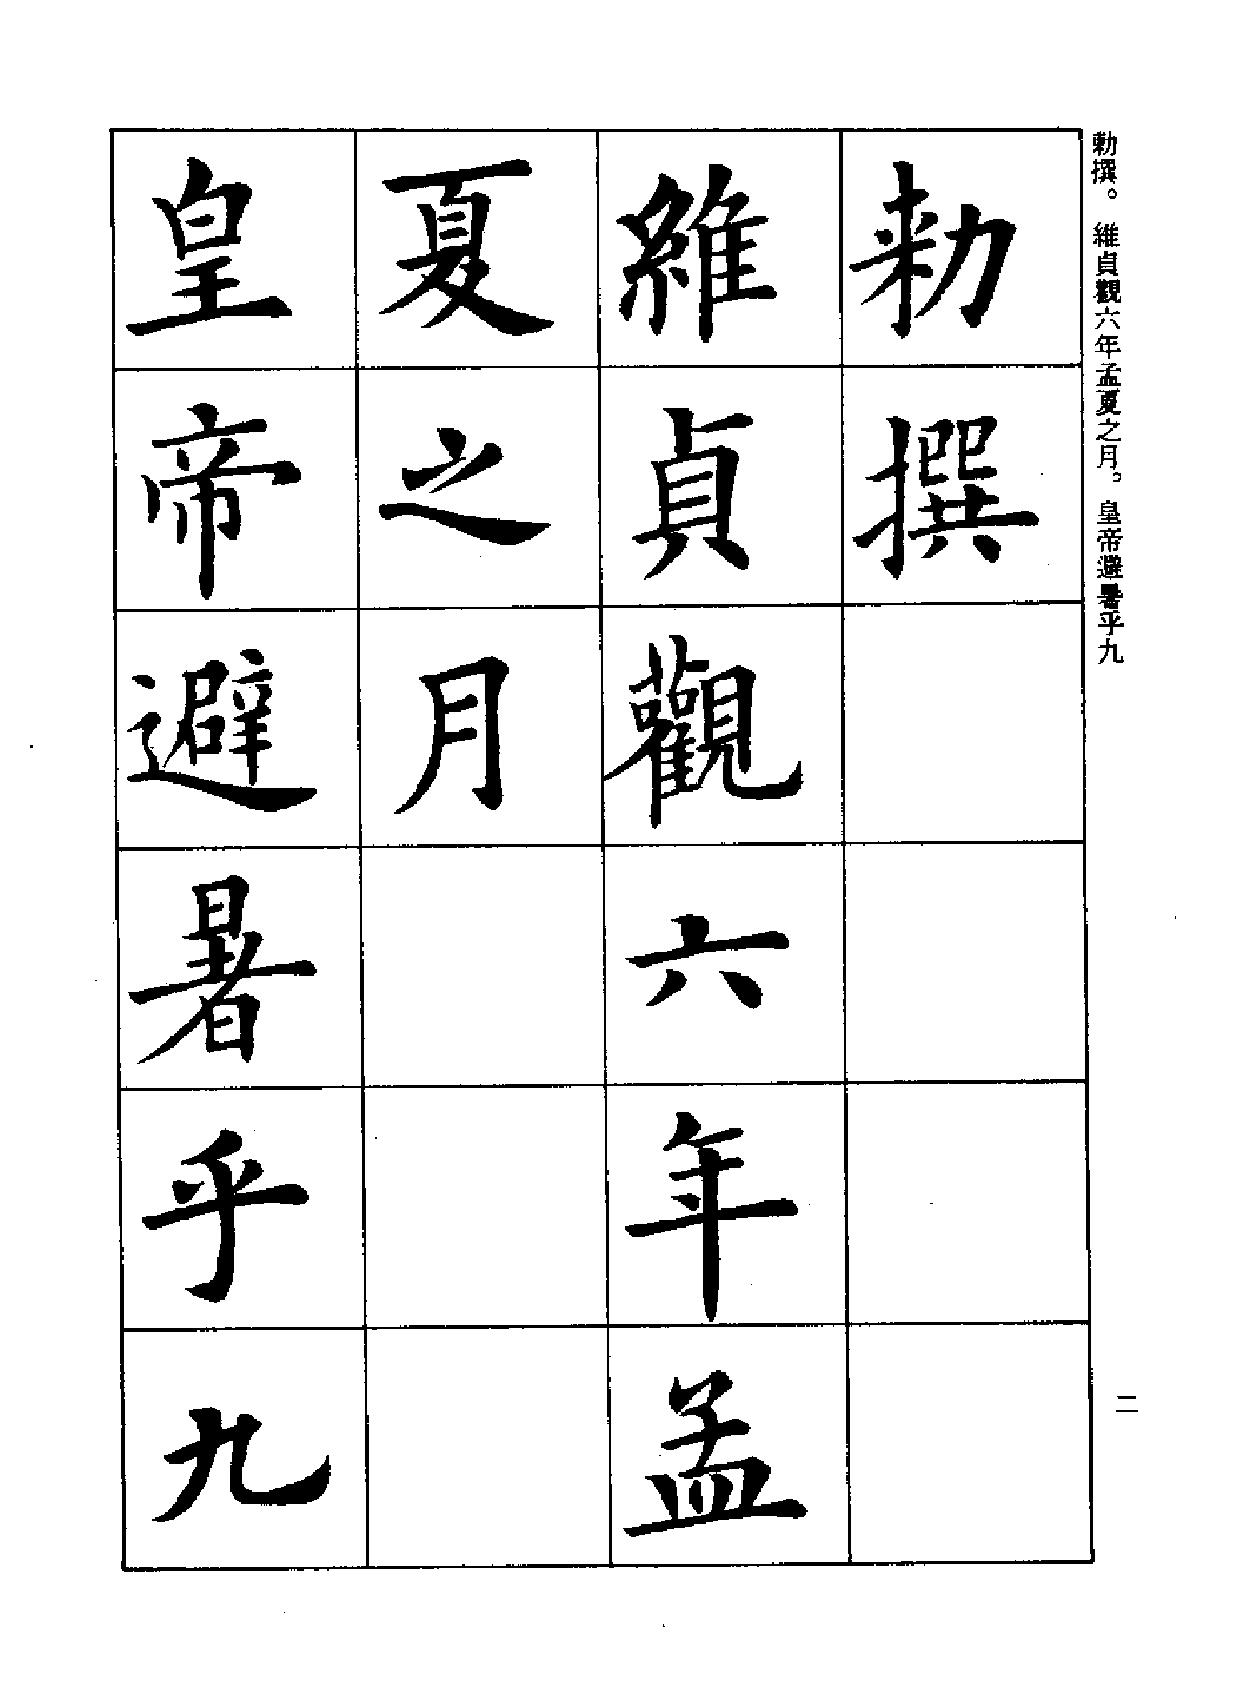 勅撰。維貞觀六年孟夏之月。皇帝避暑乎九
勅撰
維貞觀六年孟
夏之月
皇帝避暑乎九
二